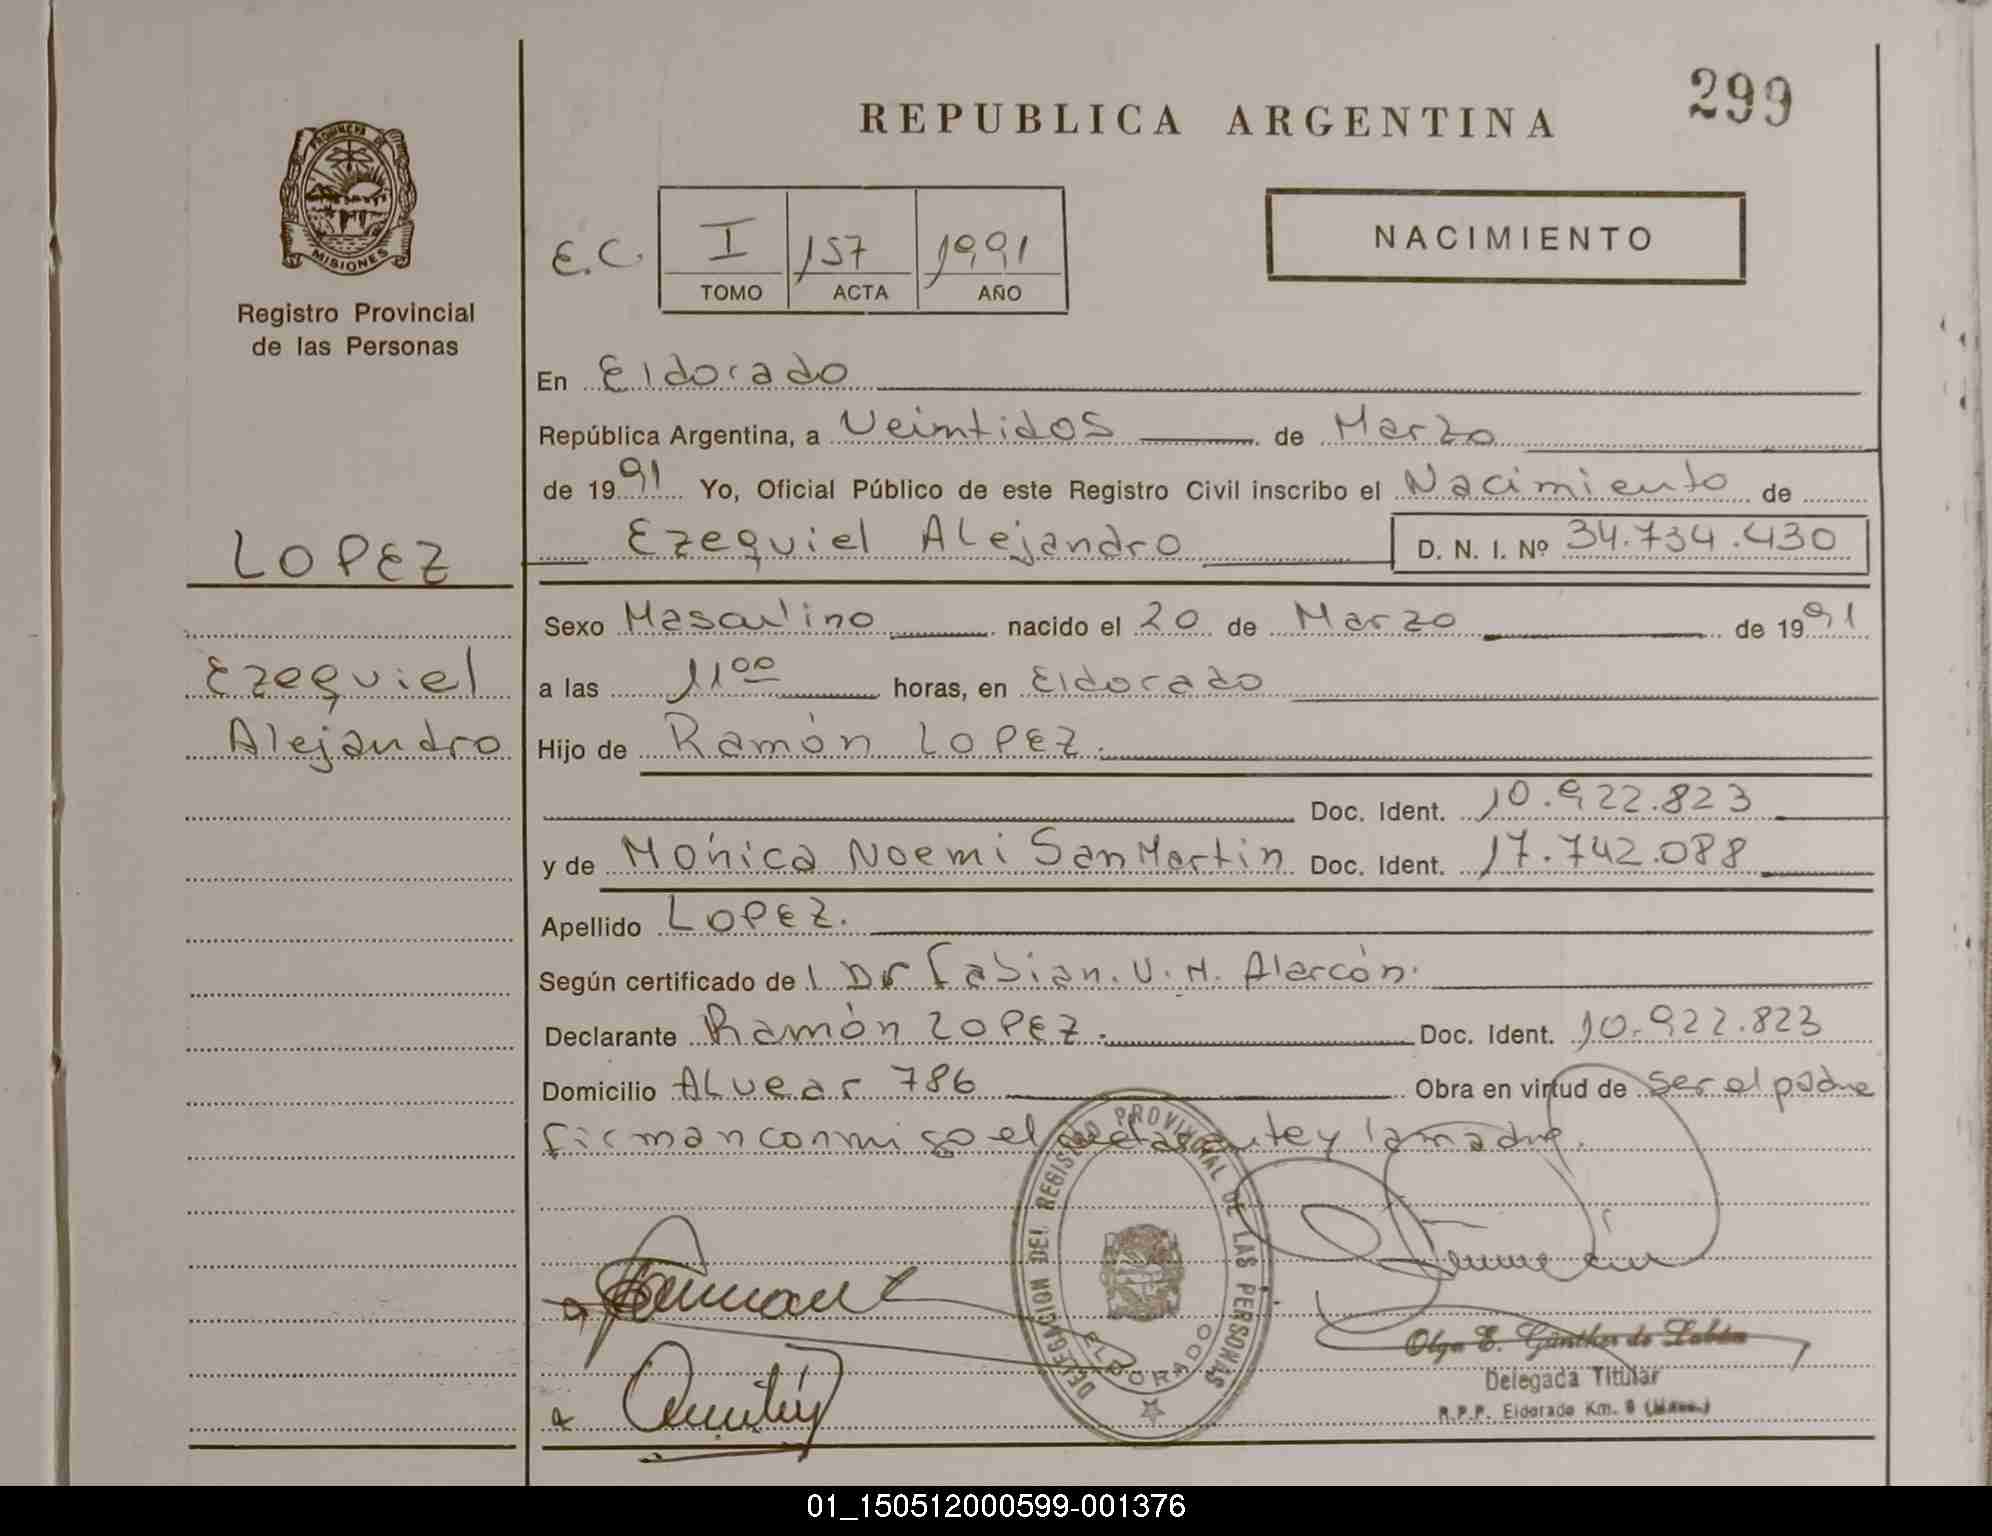 299
REPUBLICA ARGENTINA
PROVINCIA DE
MISIONES
Registro Provincial
de las Personas
NACIMIENTO
E.C. I 157 1991
TOMO ACTA AÑO
En Eldorado
República Argentina, a Veintidos de Marzo
de 1991 Yo, Oficial Público de este Registro Civil inscribo el Nacimiento de
Ezequiel Alejandro D. N. I. Nº 34.734.430
LOPEZ
Ezequiel
Alejandro
Sexo Masculino nacido el 20 de Marzo de 1991
a las 11 00 horas, en Eldorado
Hijo de Ramón LOPEZ.
Doc. Ident. 10.922.823
y de Mónica Noemi San Martin Doc. Ident. 17.742.088
Apellido LOPEZ.
Según certificado de l Dr Fabian. V. M. Alarcón.
Declarante Ramón LOPEZ. Doc. Ident. 10.922.823
Domicilio ALvear 786 Obra en virtud de ser el padre
firman conmigo el declarante y la madre.
DELEGACION DEL REGISTRO PROVINCIAL DE LAS PERSONAS
ELDORADO
Olga E. Günther de
Delegada Titular
R.P.P. Eldorado Km. 9 (Mnes.)
01_150512000599-001376